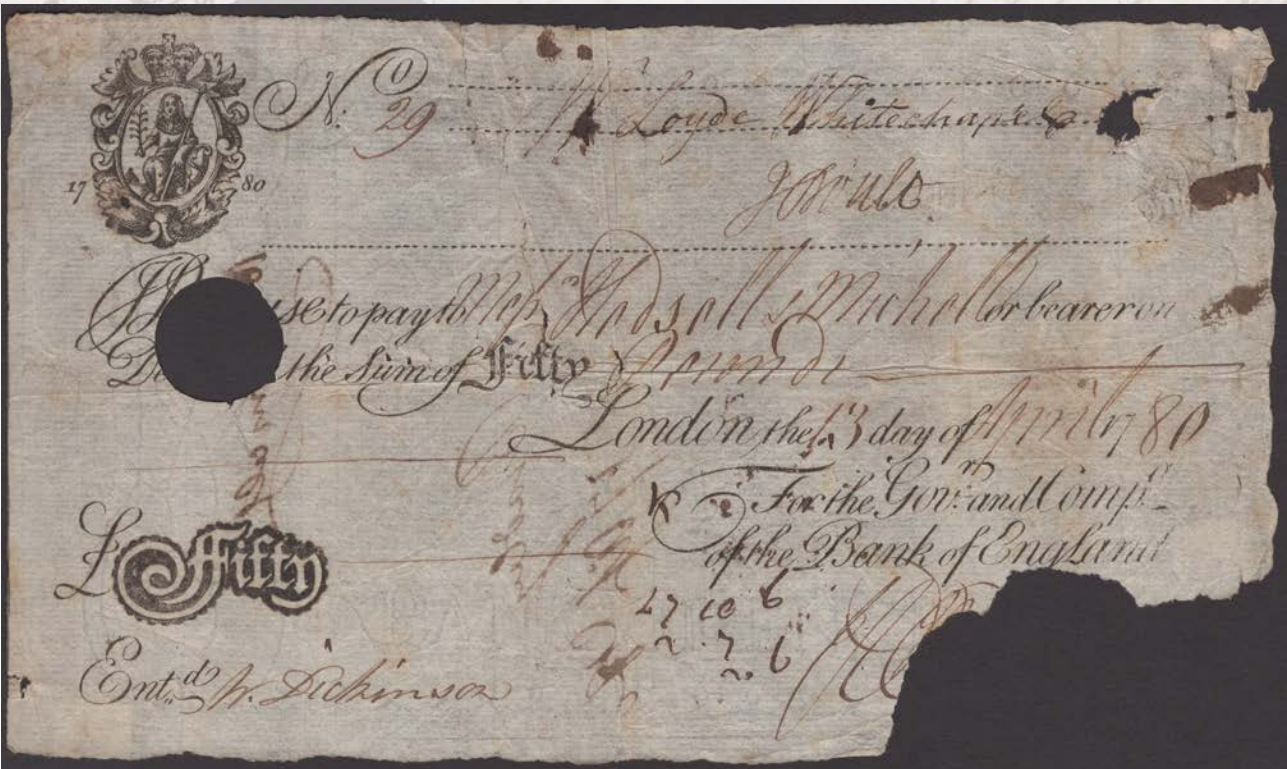 No. 29
Loyde Whitechapel
17 80
se to pay to Hodsoll & Michell or bearer on
the Sum of Fifty Pounds
London the 13 day of April 1780
For the Govr. and Compa.
of the Bank of England
£ Fifty
47 10 6
2 7 6
2 6
Entd. W. Dickinson